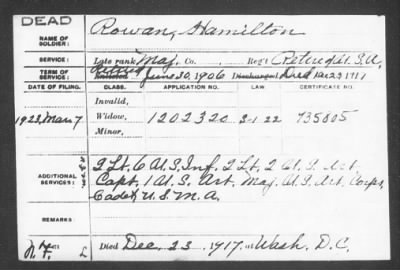 DEAD
NAME OF SOLDIER: Rowan, Hamilton
SERVICE: Late rank Maj. Co. Reg't Retired U.S.A.
TERM OF SERVICE: Retired June 30, 1906 Discharged Died Dec 23 1917
DATE OF FILING. CLASS. APPLICATION NO. LAW CERTIFICATE NO.
Invalid,
1923, Mar 7 Widow, 1202320 3-1 22 935805
Minor,
ADDITIONAL SERVICES: 2 Lt. 6 U.S. Inf. 2 Lt. 2 U.S. Art.
Capt. 1 U.S. Art. Maj. U.S. Art. Corps,
Cadet U.S.M.A.
REMARKS:
Died Dec. 23, 1917, at Wash. D.C.